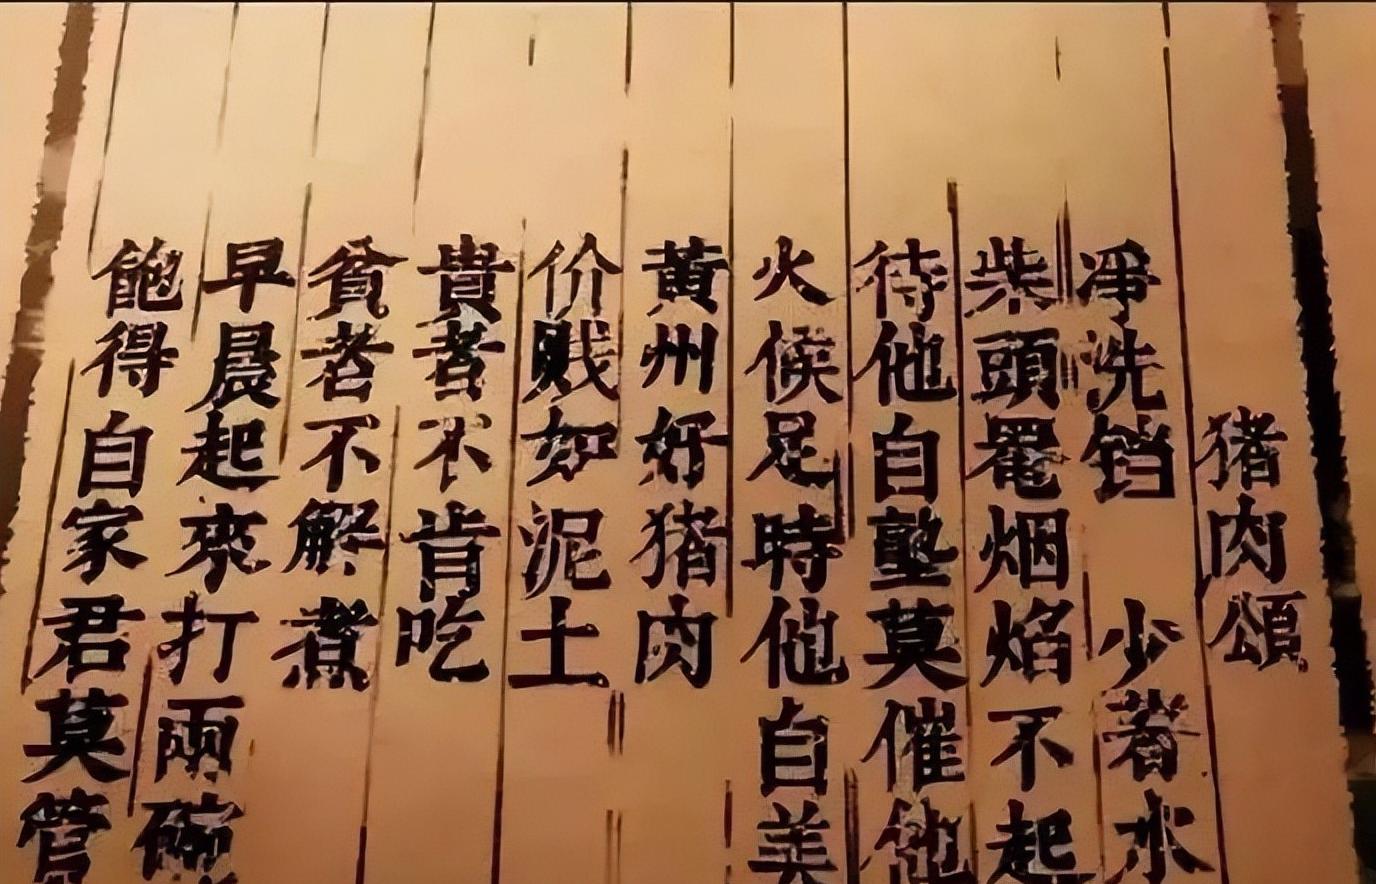 猪肉頌
凈洗铛 少着水
柴頭罨烟焰不起
待他自塾莫催他
火候足時他自美
黃州好猪肉
价贱如泥土
貴者不肯吃
貧者不解煮
早晨起來打兩碗
飽得自家君莫管